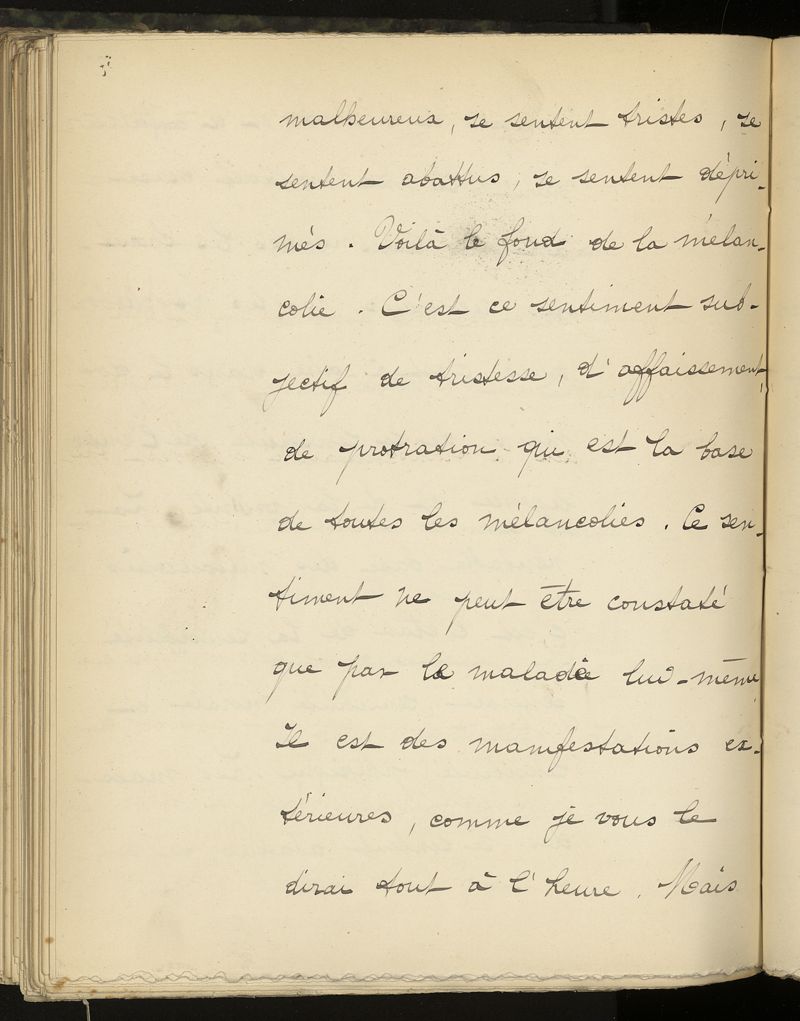 malheureux, se sentent tristes, se
sentent abattus, se sentent dépri-
més. Voilà le fond de la mélan-
colie. C'est ce sentiment sub-
jectif de tristesse, d'affaissement,
de protration qui est la base
de toutes les mélancolies. Ce sen-
timent ne peut être constaté
que par le malade lui-même
Il est des manifestations ex-
térieures, comme je vous le
dirai tout à l'heure. Mais